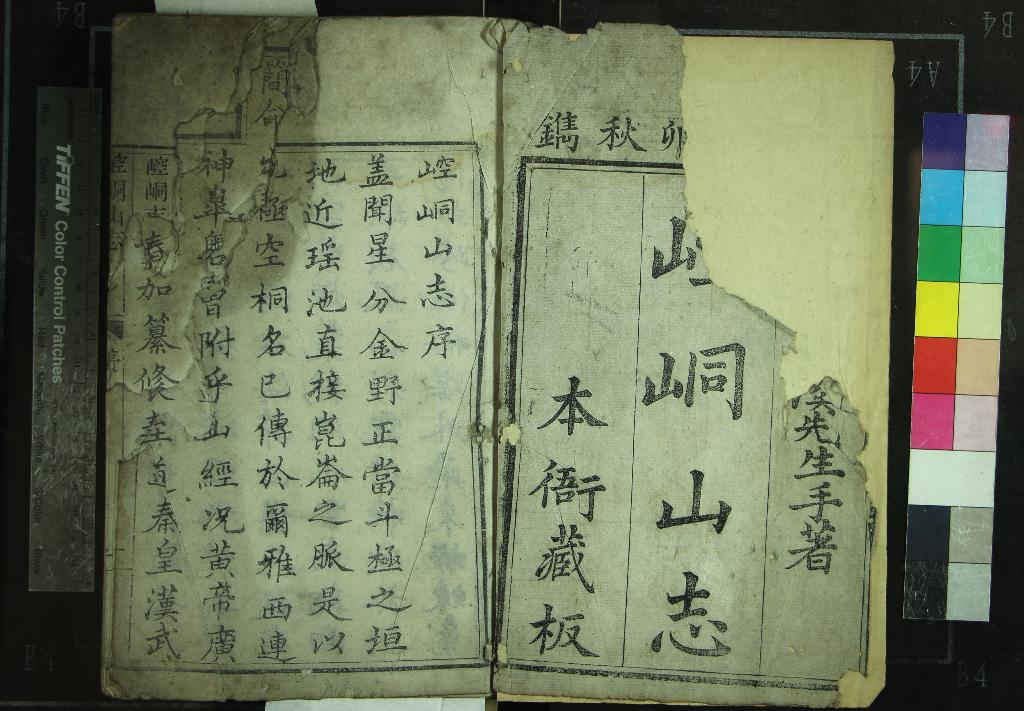 卯秋鐫
先生手著
峒山志
本衙藏板
崆峒山志序
盖聞星分金野正當斗極之垣
地近瑶池直接崑崙之脈是以
極空桐名已傳於爾雅西連
神臯舊曾附乎山經况黄帝廣
加纂修
道秦皇漢武
簡命
崆峒山志
序
TIFFEN Color Control Patches
Blue
Cyan
Green
Yellow
Red
Magenta
White
3/Color
Black
B4
B4
A4
B4
B4